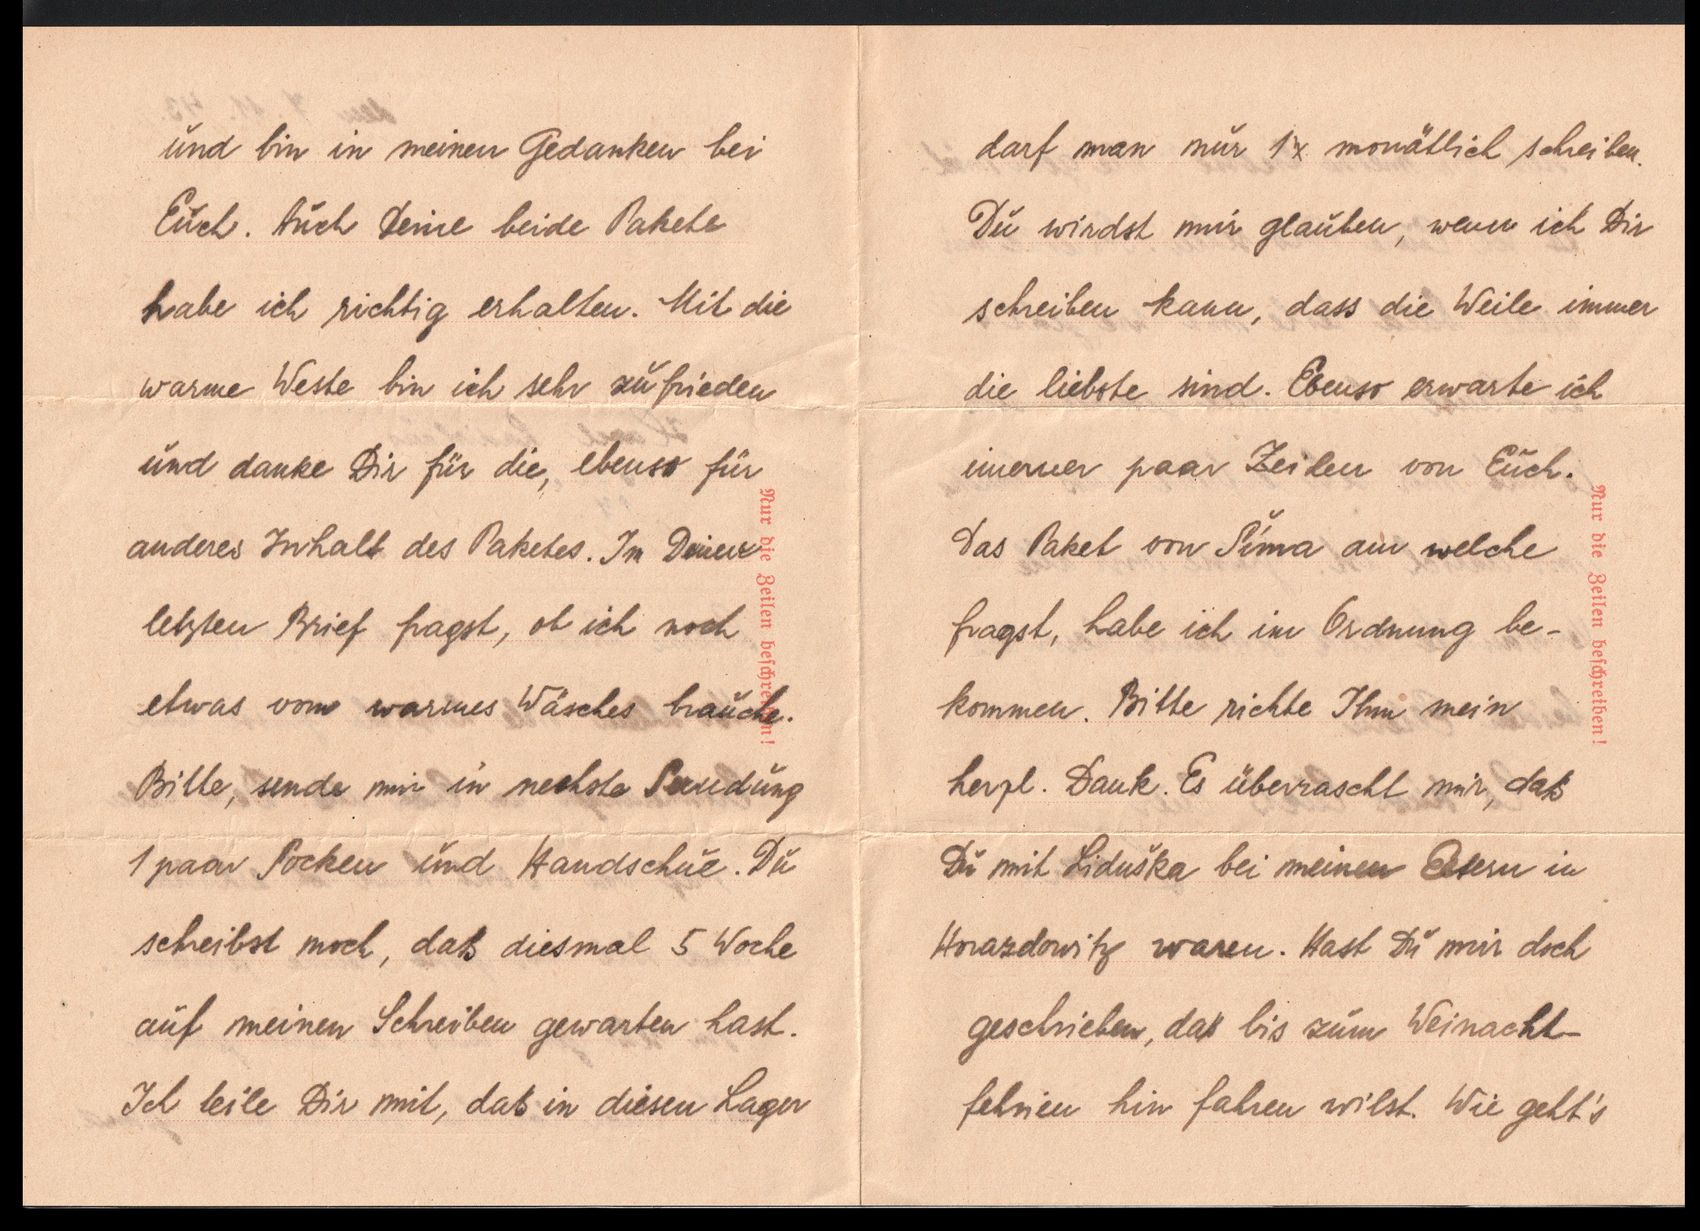 und bin in meinen Gedanken bei
Euch. Auch Deine beide Pakete
habe ich richtig erhalten. Mit die
warme Weste bin ich sehr zufrieden
und danke Dir für die, ebenso für
anderes Inhalt des Paketes. In Deinen
letzten Brief fragst, ob ich noch
etwas vom warmes Wäsches brauche.
Bitte, sende mir in nechste Sendung
1 paar Socken und Handschue. Du
schreibst noch, daß diesmal 5 Woche
auf meinen Schreiben gewarten hast.
Ich teile Dir mit, daß in diesen Lager
Nur die Zeilen beschreiben!
darf man nur 1x monätlich schreiben.
Du wirdst mir glauben, wenn ich Dir
schreiben kann, dass die Weile immer
die liebste sind. Ebenso erwarte ich
immer paar Zeilen von Euch.
Das Paket von Šíma an welche
fragst, habe ich im Ordnung be-
kommen. Bitte richte Ihm mein
herzl. Dank. Es überrascht mir, daß
Du mit Liduška bei meinen Eltern in
Horazdowitz waren. Hast Du mir doch
geschrieben, daß bis zum Weinacht-
fehrien hin fahren wilst. Wie geht's
Nur die Zeilen beschreiben!